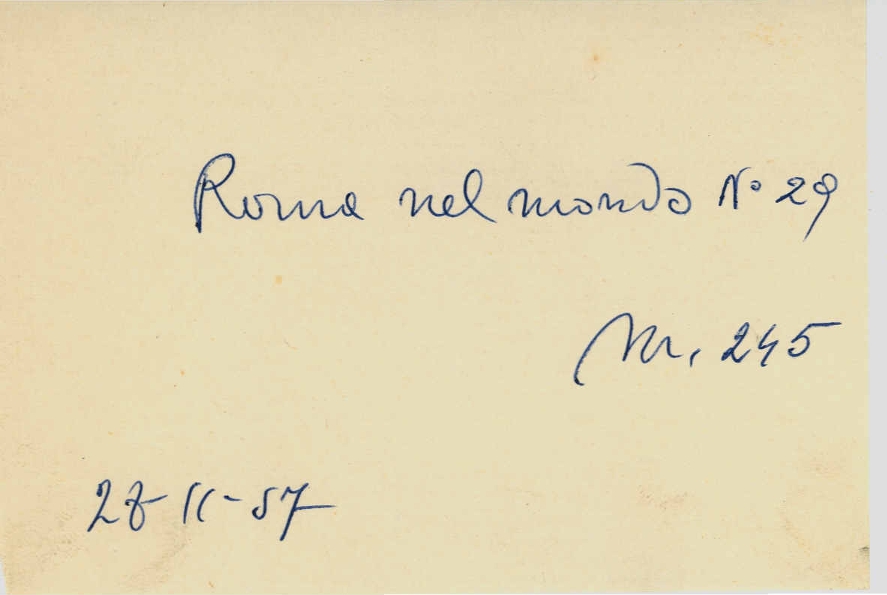 Roma nel mondo N° 29
Nr. 245
28-11-57